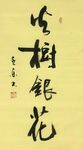 火樹銀花